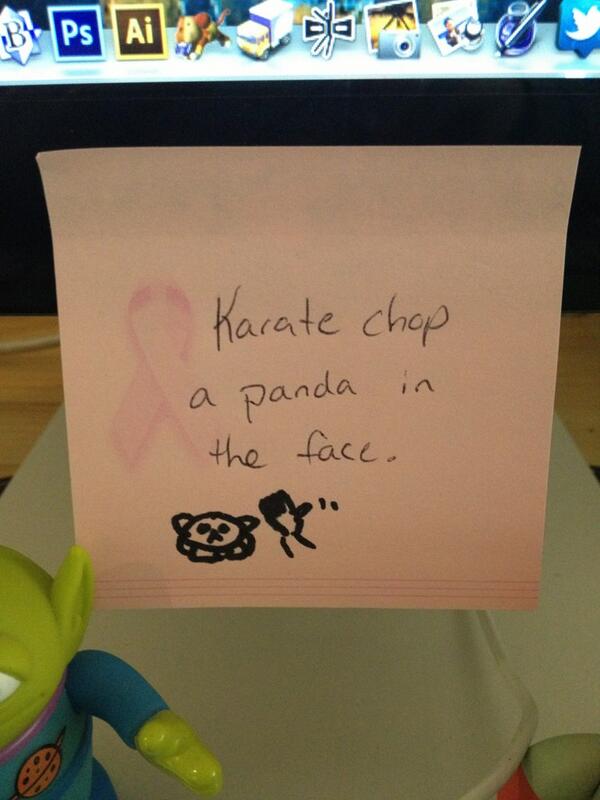 B
Ps
Ai
Karate chop
a panda in
the face.